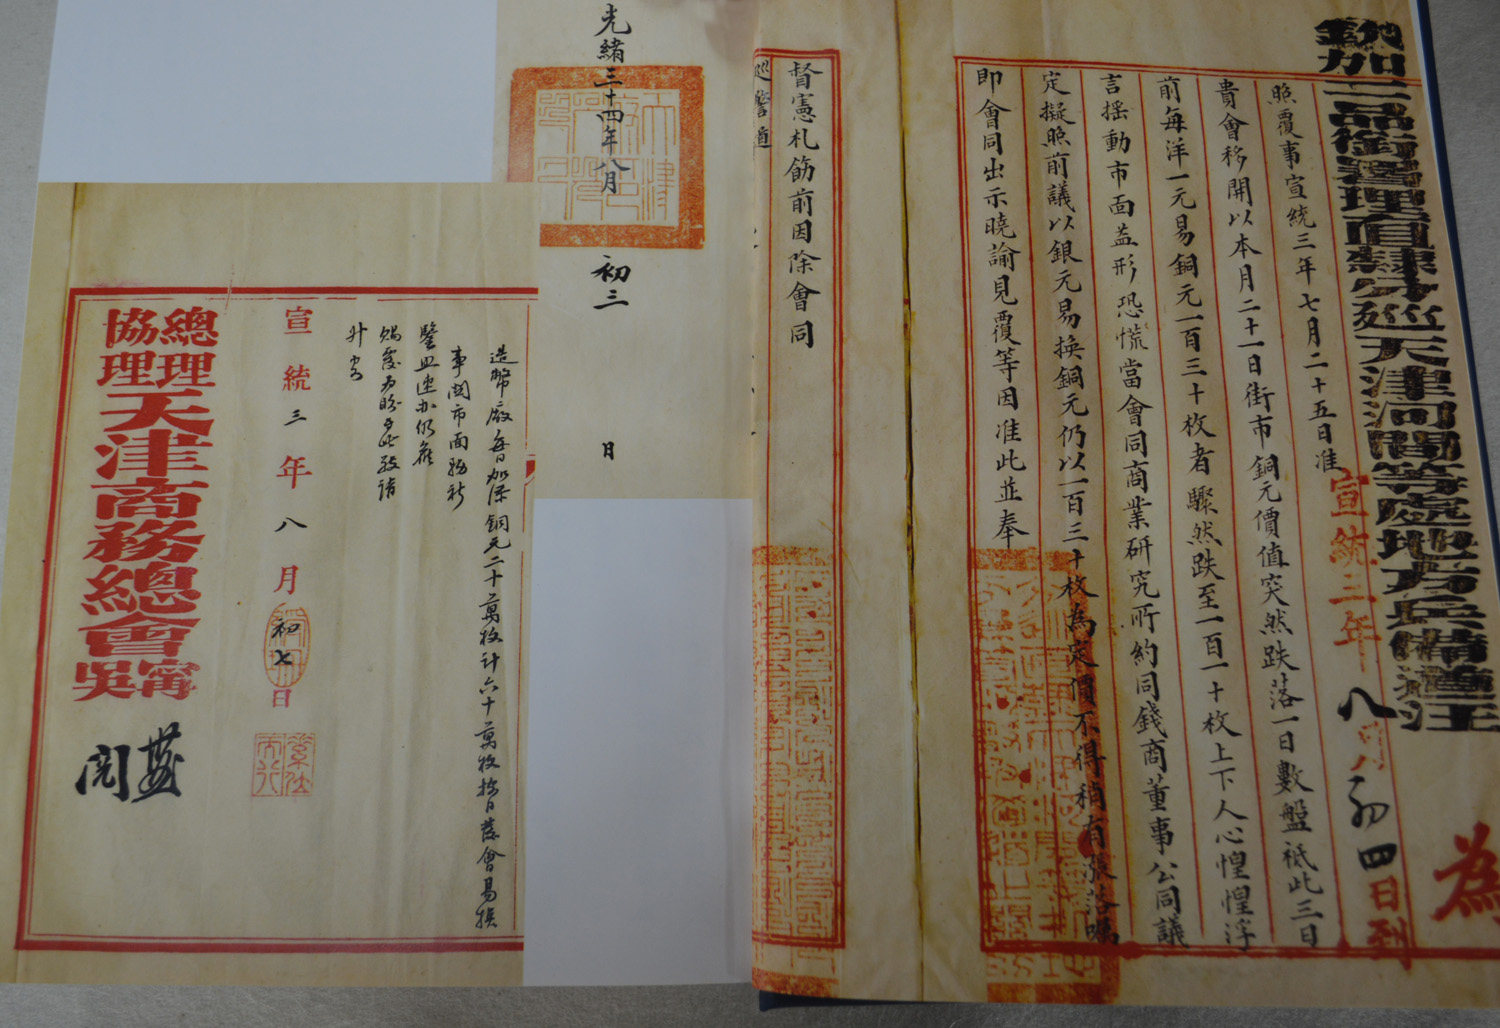 欽加二品銜署理直隸分巡天津河間等處地方兵備道汪
為
宣統三年八月初四日到
照覆事宣統三年七月二十五日准
貴會移開以本月二十一日街市銅元價值突然跌落一日數盤祗此三日
前每洋一元易銅元一百三十枚者驟然跌至一百一十枚上下人心惶惶浮
言搖動市面益形恐慌當會同商業研究所約同錢商董事公同議
定擬照前議以銀元易換銅元仍以一百三十枚為定價不得稍有漲落囑
即會同出示曉諭見覆等因准此並奉
督憲札飭前因除會同
巡警道
光緒三十四年八月初三日
造幣廠每日加添銅元二十萬枚計六十萬枚按日發會易換
事關市面務祈
鑒照速辦仍希
賜覆為盼耑此敬請
升安
宣統三年八月初七日
總理
協理
天津商務總會
甯
吳